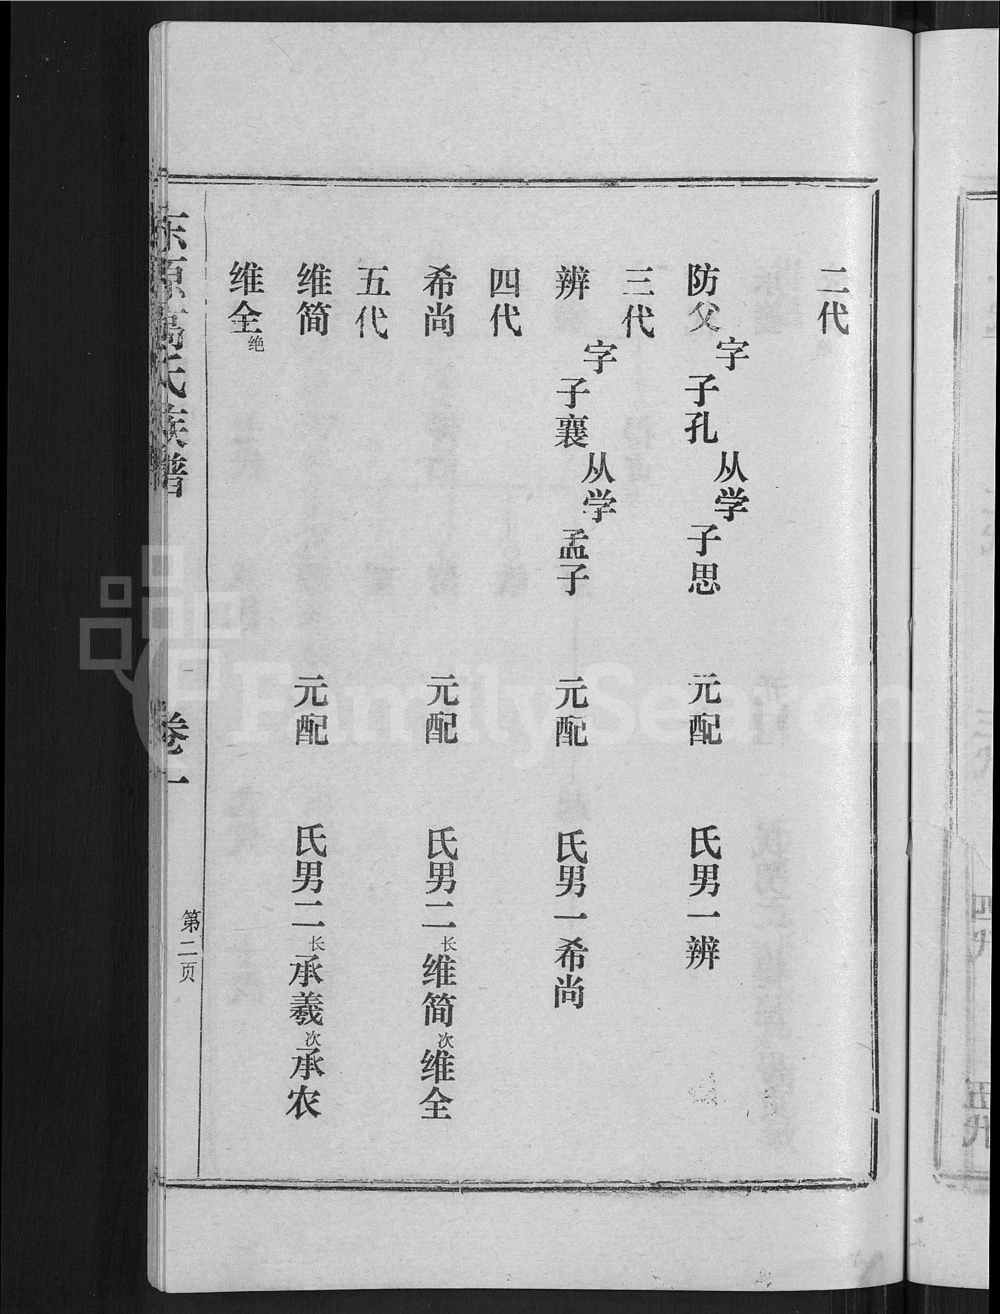 二代
防父 字 子孔 从学 子思 元配 氏男一辨
三代
辨 字 子襄 从学 孟子 元配 氏男一希尚
四代
希尚 元配 氏男二 长 维简 次 维全
五代
维简 元配 氏男二 长 承羲 次 承农
维全 绝
氏族谱 卷一 第二页
四代
五代
FamilySearch